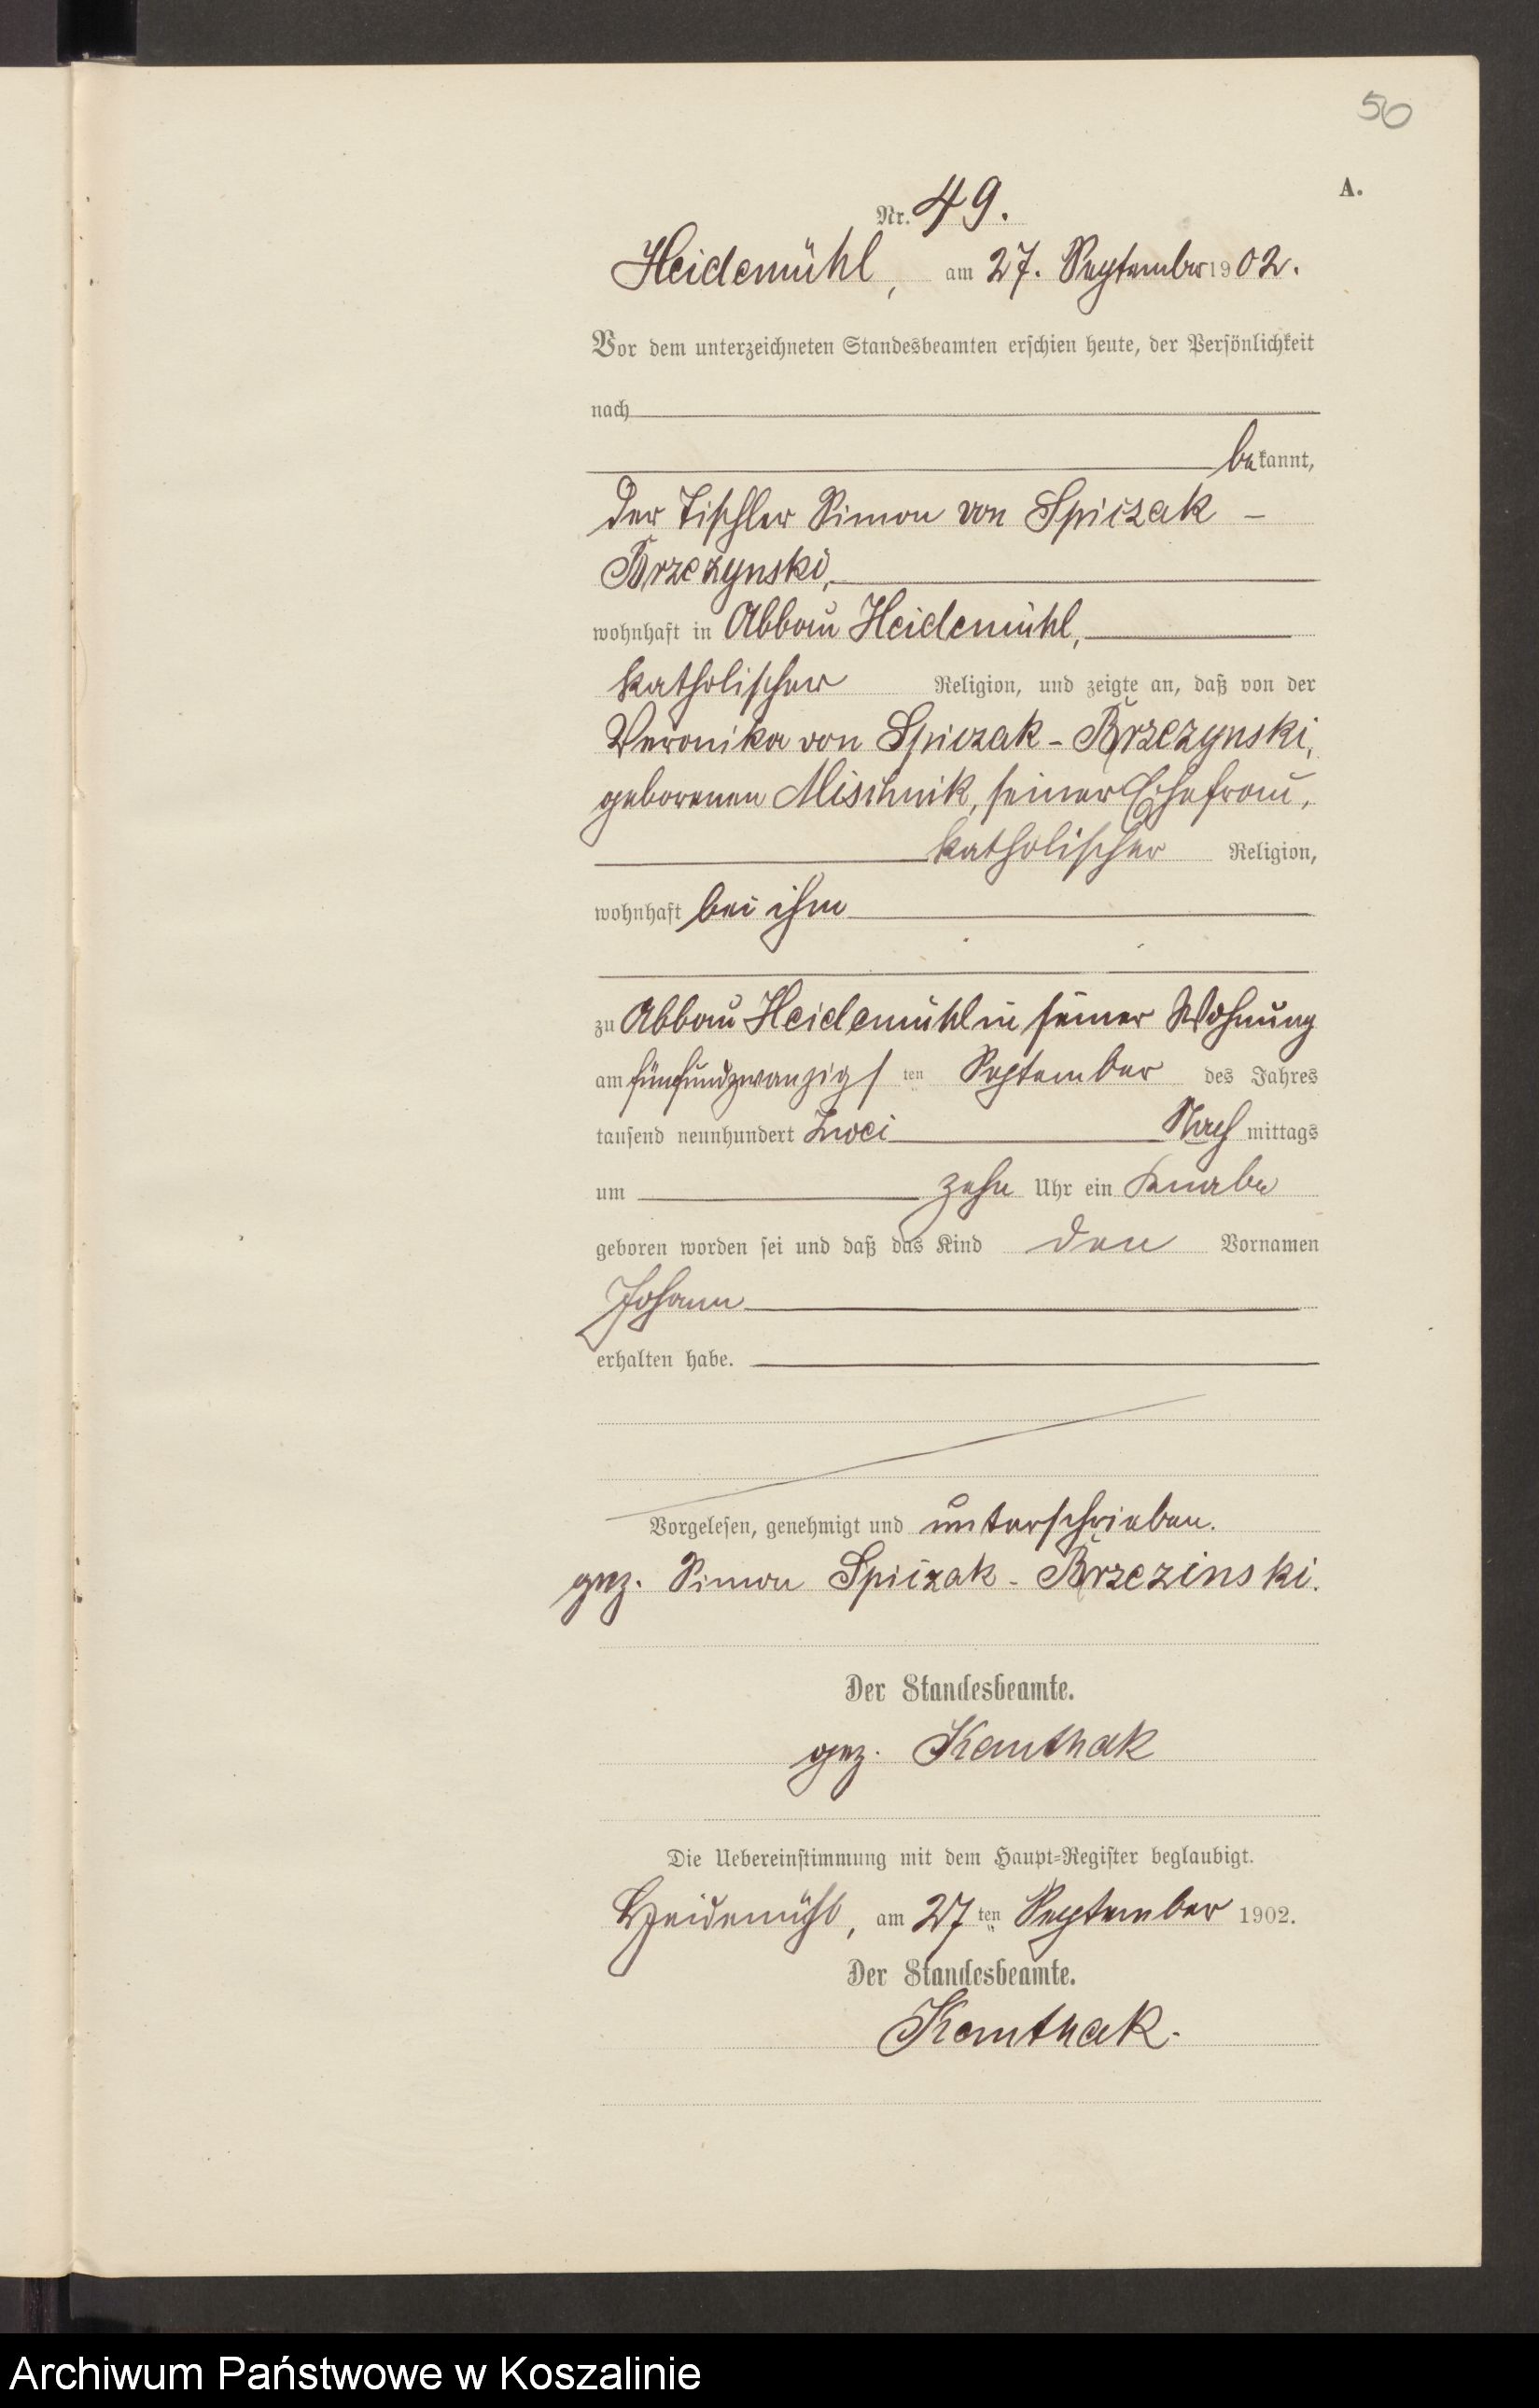 50
A.
Nr. 49.
Heidemühl, am 27. September 1902.
Vor dem unterzeichneten Standesbeamten erschien heute, der Persönlichkeit
nach
bekannt,
der Tischler Simon von Spiczak -
Brzezynski,
wohnhaft in Abbau Heidemühl,
katholischer Religion, und zeigte an, daß von der
Veronika von Spiczak - Brzezynski,
geborenen Mischnik, seiner Ehefrau,
katholischer Religion,
wohnhaft bei ihm
zu Abbau Heidemühl in seiner Wohnung
am fünfundzwanzigsten September des Jahres
tausend neunhundert zwei Nachmittags
um zehn Uhr ein Knabe
geboren worden sei und daß das Kind den Vornamen
Johann
erhalten habe.
Vorgelesen, genehmigt und unterschrieben.
gez. Simon Spiczak - Brzezinski.
Der Standesbeamte.
gez. Kanthak
Die Uebereinstimmung mit dem Haupt=Register beglaubigt.
Heidemühl, am 27ten September 1902.
Der Standesbeamte.
Kanthak.
Archiwum Państwowe w Koszalinie